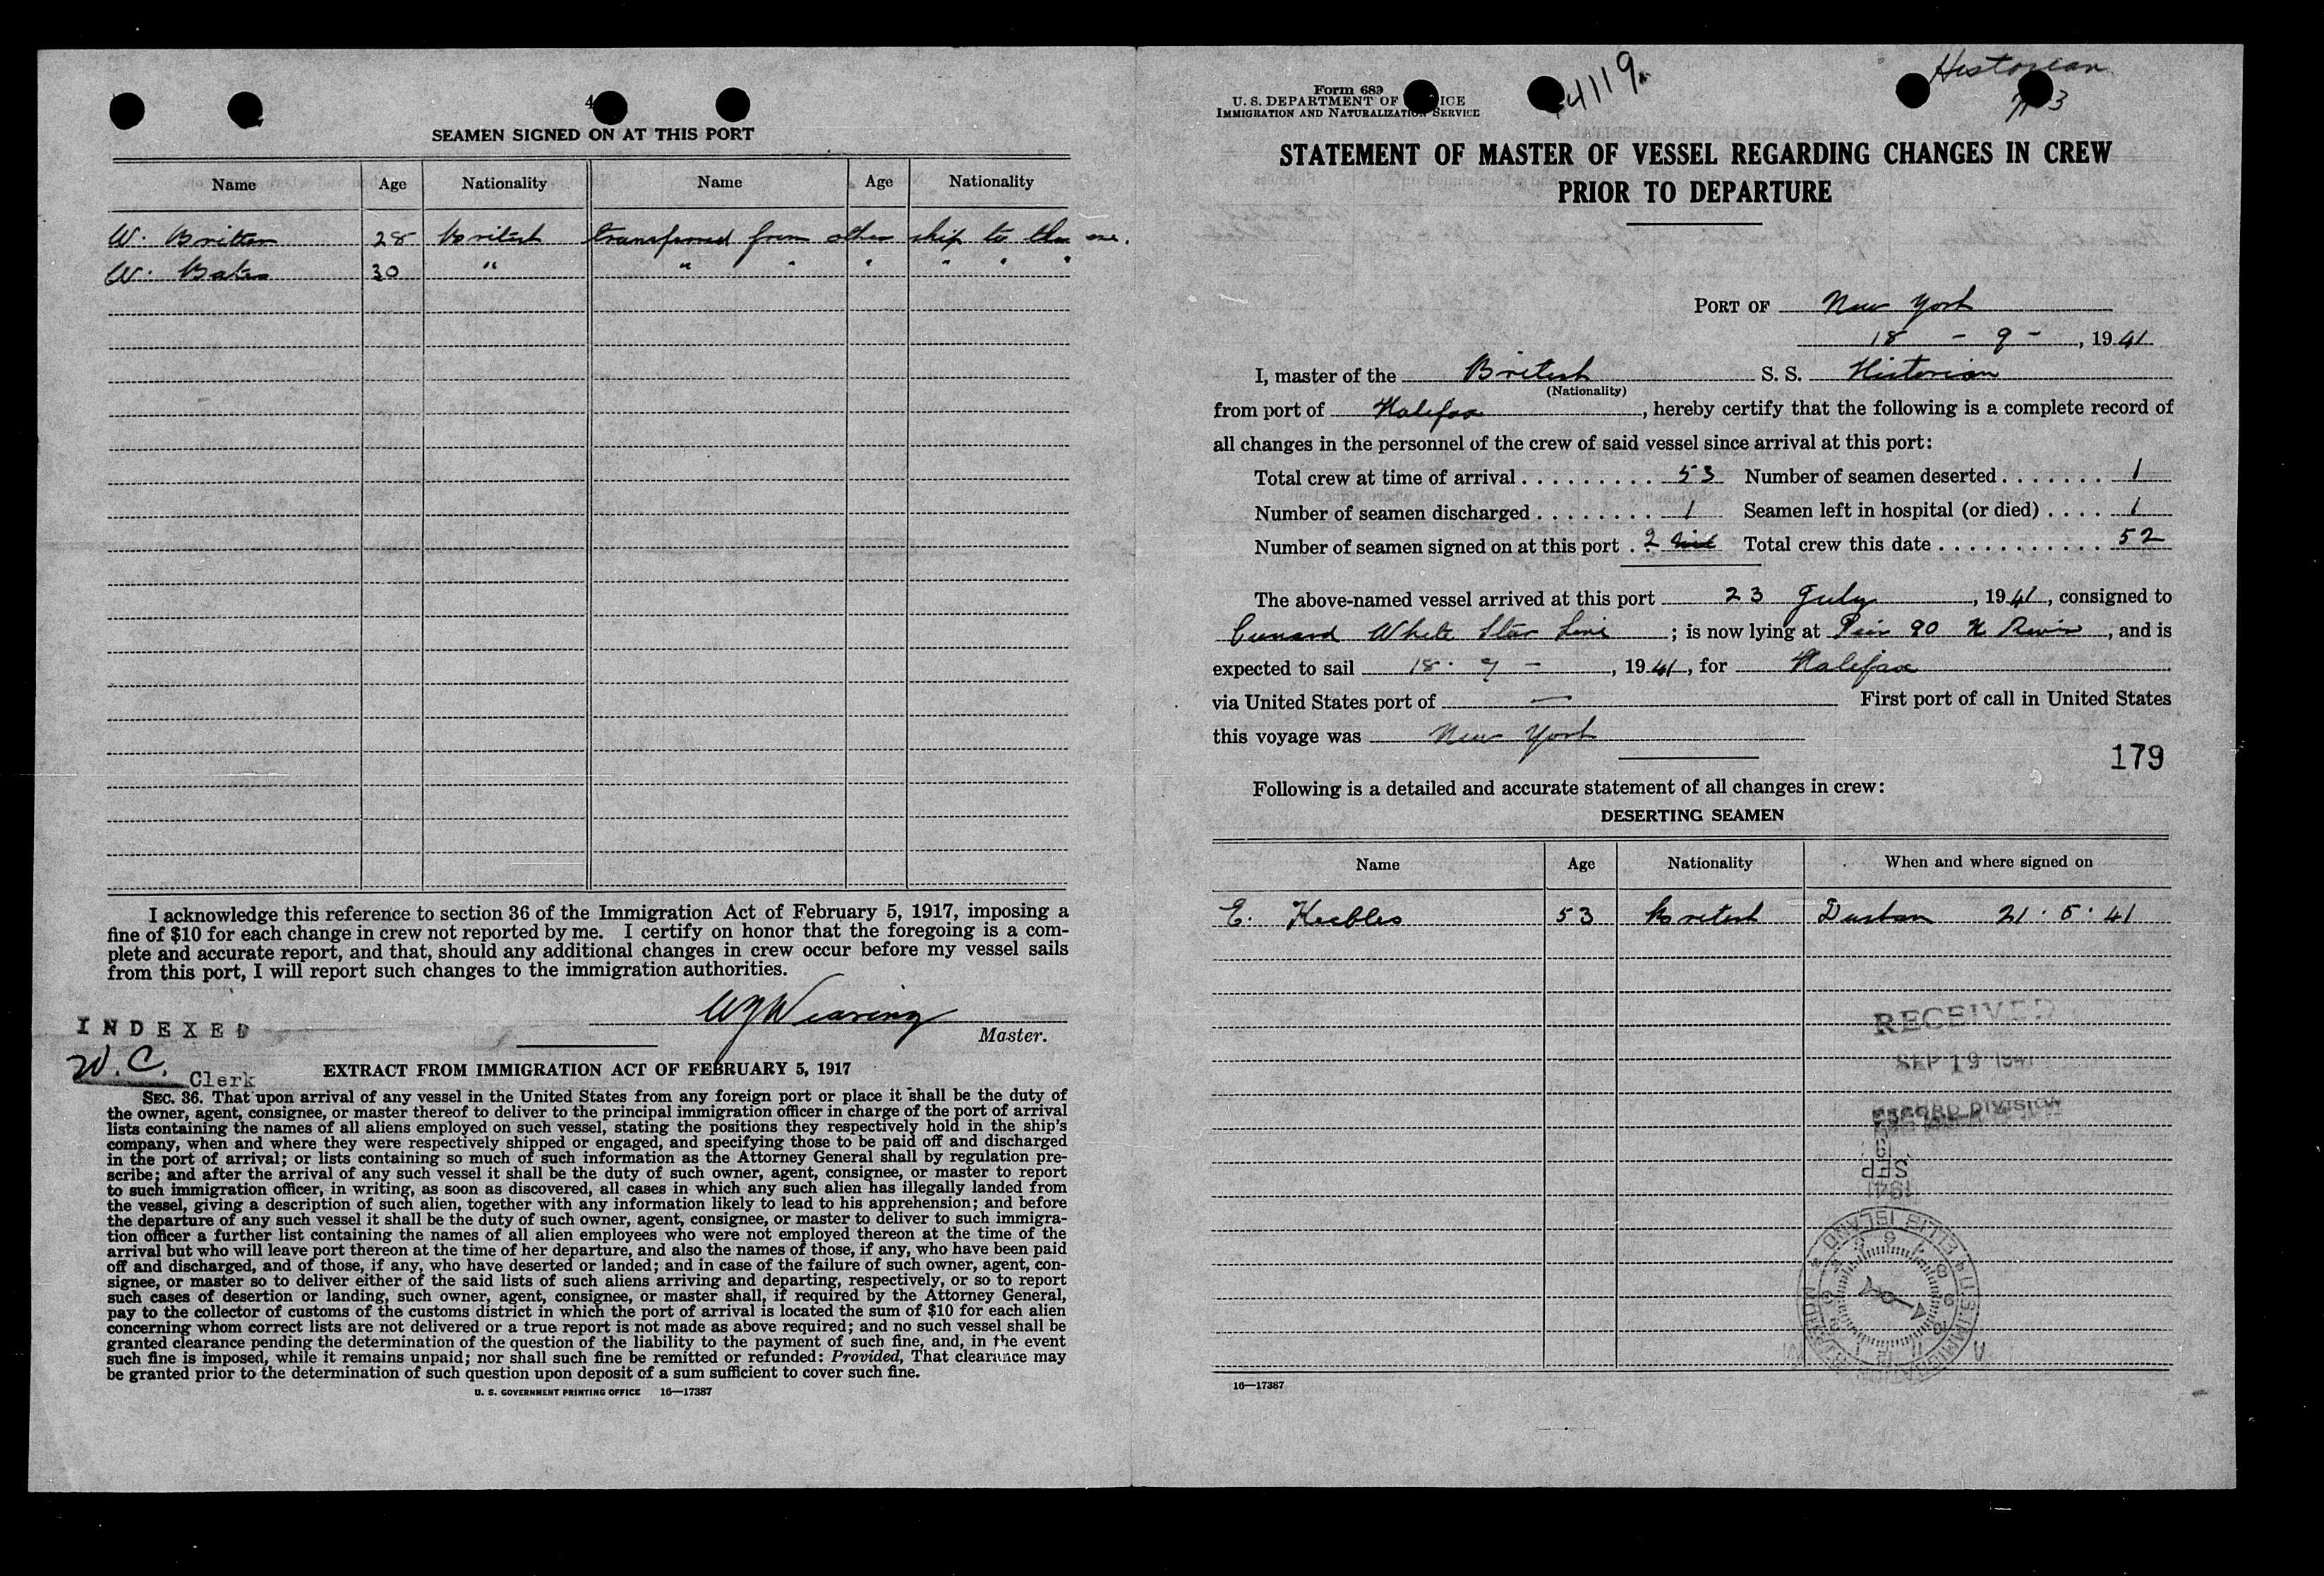 4
SEAMEN SIGNED ON AT THIS PORT
Name Age Nationality Name Age Nationality
W. Britton 28 British transferred from other ship to this one.
W. Bates 30 " " " " " " "
I acknowledge this reference to section 36 of the Immigration Act of February 5, 1917, imposing a
fine of $10 for each change in crew not reported by me. I certify on honor that the foregoing is a com-
plete and accurate report, and that, should any additional changes in crew occur before my vessel sails
from this port, I will report such changes to the immigration authorities.
Master.
INDEXED
W.C. Clerk
EXTRACT FROM IMMIGRATION ACT OF FEBRUARY 5, 1917
SEC. 36. That upon arrival of any vessel in the United States from any foreign port or place it shall be the duty of
the owner, agent, consignee, or master thereof to deliver to the principal immigration officer in charge of the port of arrival
lists containing the names of all aliens employed on such vessel, stating the positions they respectively hold in the ship's
company, when and where they were respectively shipped or engaged, and specifying those to be paid off and discharged
in the port of arrival; or lists containing so much of such information as the Attorney General shall by regulation pre-
scribe; and after the arrival of any such vessel it shall be the duty of such owner, agent, consignee, or master to report
to such immigration officer, in writing, as soon as discovered, all cases in which any such alien has illegally landed from
the vessel, giving a description of such alien, together with any information likely to lead to his apprehension; and before
the departure of any such vessel it shall be the duty of such owner, agent, consignee, or master to deliver to such immigra-
tion officer a further list containing the names of all alien employees who were not employed thereon at the time of the
arrival but who will leave port thereon at the time of her departure, and also the names of those, if any, who have been paid
off and discharged, and of those, if any, who have deserted or landed; and in case of the failure of such owner, agent, con-
signee, or master so to deliver either of the said lists of such aliens arriving and departing, respectively, or so to report
such cases of desertion or landing, such owner, agent, consignee, or master shall, if required by the Attorney General,
pay to the collector of customs of the customs district in which the port of arrival is located the sum of $10 for each alien
concerning whom correct lists are not delivered or a true report is not made as above required; and no such vessel shall be
granted clearance pending the determination of the question of the liability to the payment of such fine, and, in the event
such fine is imposed, while it remains unpaid; nor shall such fine be remitted or refunded: Provided, That clearance may
be granted prior to the determination of such question upon deposit of a sum sufficient to cover such fine.
U. S. GOVERNMENT PRINTING OFFICE 16—17387
Historian
4119
Form 689
U. S. DEPARTMENT OF ICE
IMMIGRATION AND NATURALIZATION SERVICE
STATEMENT OF MASTER OF VESSEL REGARDING CHANGES IN CREW
PRIOR TO DEPARTURE
PORT OF New York
18 - 9 -, 1941
I, master of the British S. S. Historian
(Nationality)
from port of Halifax, hereby certify that the following is a complete record of
all changes in the personnel of the crew of said vessel since arrival at this port:
Total crew at time of arrival . . . . . . . . . 53 Number of seamen deserted . . . . . . . 1
Number of seamen discharged . . . . . . . . 1 Seamen left in hospital (or died) . . . . 1
Number of seamen signed on at this port . . 2 Total crew this date . . . . . . . . . . . 52
The above-named vessel arrived at this port 23 July, 1941, consigned to
Cunard White Star Line; is now lying at Pier 90 N River, and is
expected to sail 18 - 9 -, 1941, for Halifax
via United States port of — First port of call in United States
this voyage was New York
179
Following is a detailed and accurate statement of all changes in crew:
DESERTING SEAMEN
Name Age Nationality When and where signed on
E. Keebles 53 British Durban 21 . 5 . 41
RECEIVED
SEP 19 1941
RECORD DIVISION
19
SEP
1941
ELLIS ISLAND
U.S. IMMIGRATION
16—17387